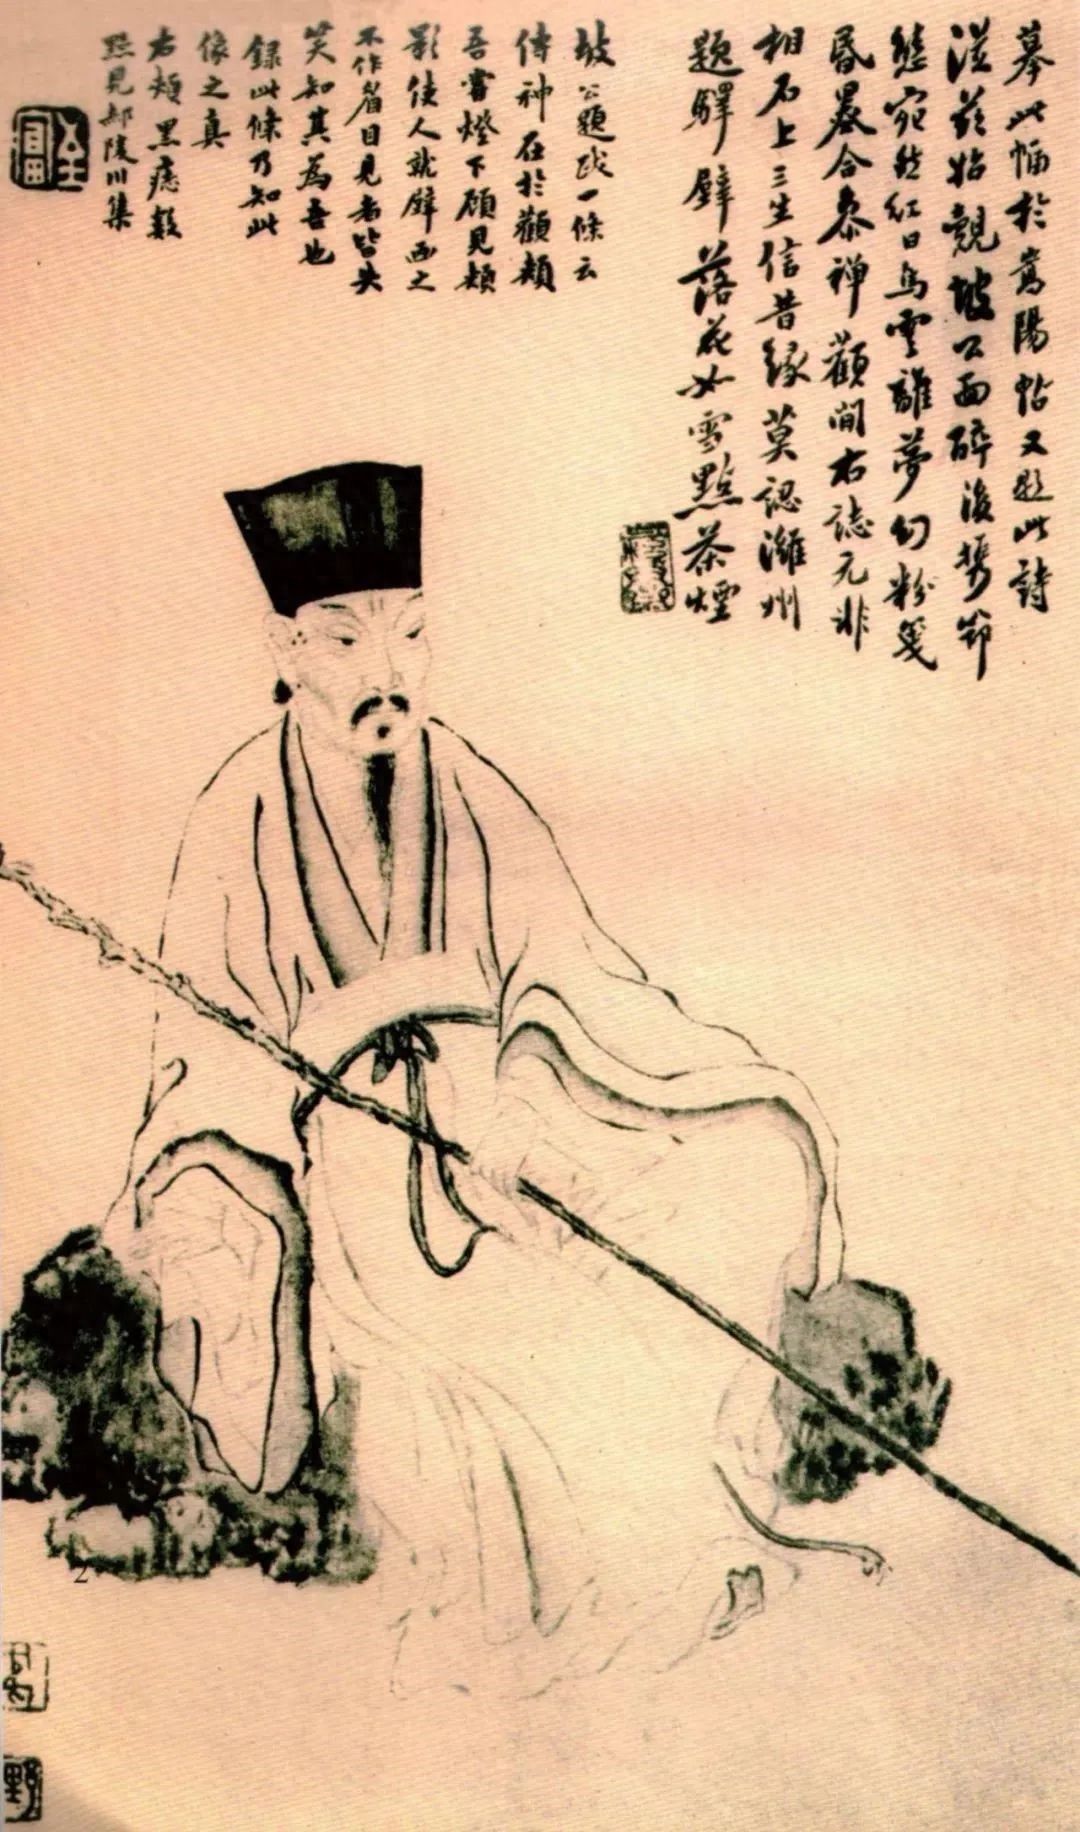 摹此幅於嵩陽帖又題此詩
從茲始覿坡公面醉後攜笻
態宛然紅日烏雲離夢幻粉箋
昏墨合參禪顴間右誌元非
相石上三生信昔緣莫認濰州
題驛壁落花如雪點茶煙
坡公題跋一條云
傳神在於顴頰
吾嘗燈下顧見頰
影使人就壁画之
不作眉目見者皆失
笑知其為吾也
録此條乃知此
像之真
右頰黑痣數
點見郝陵川集
2
野